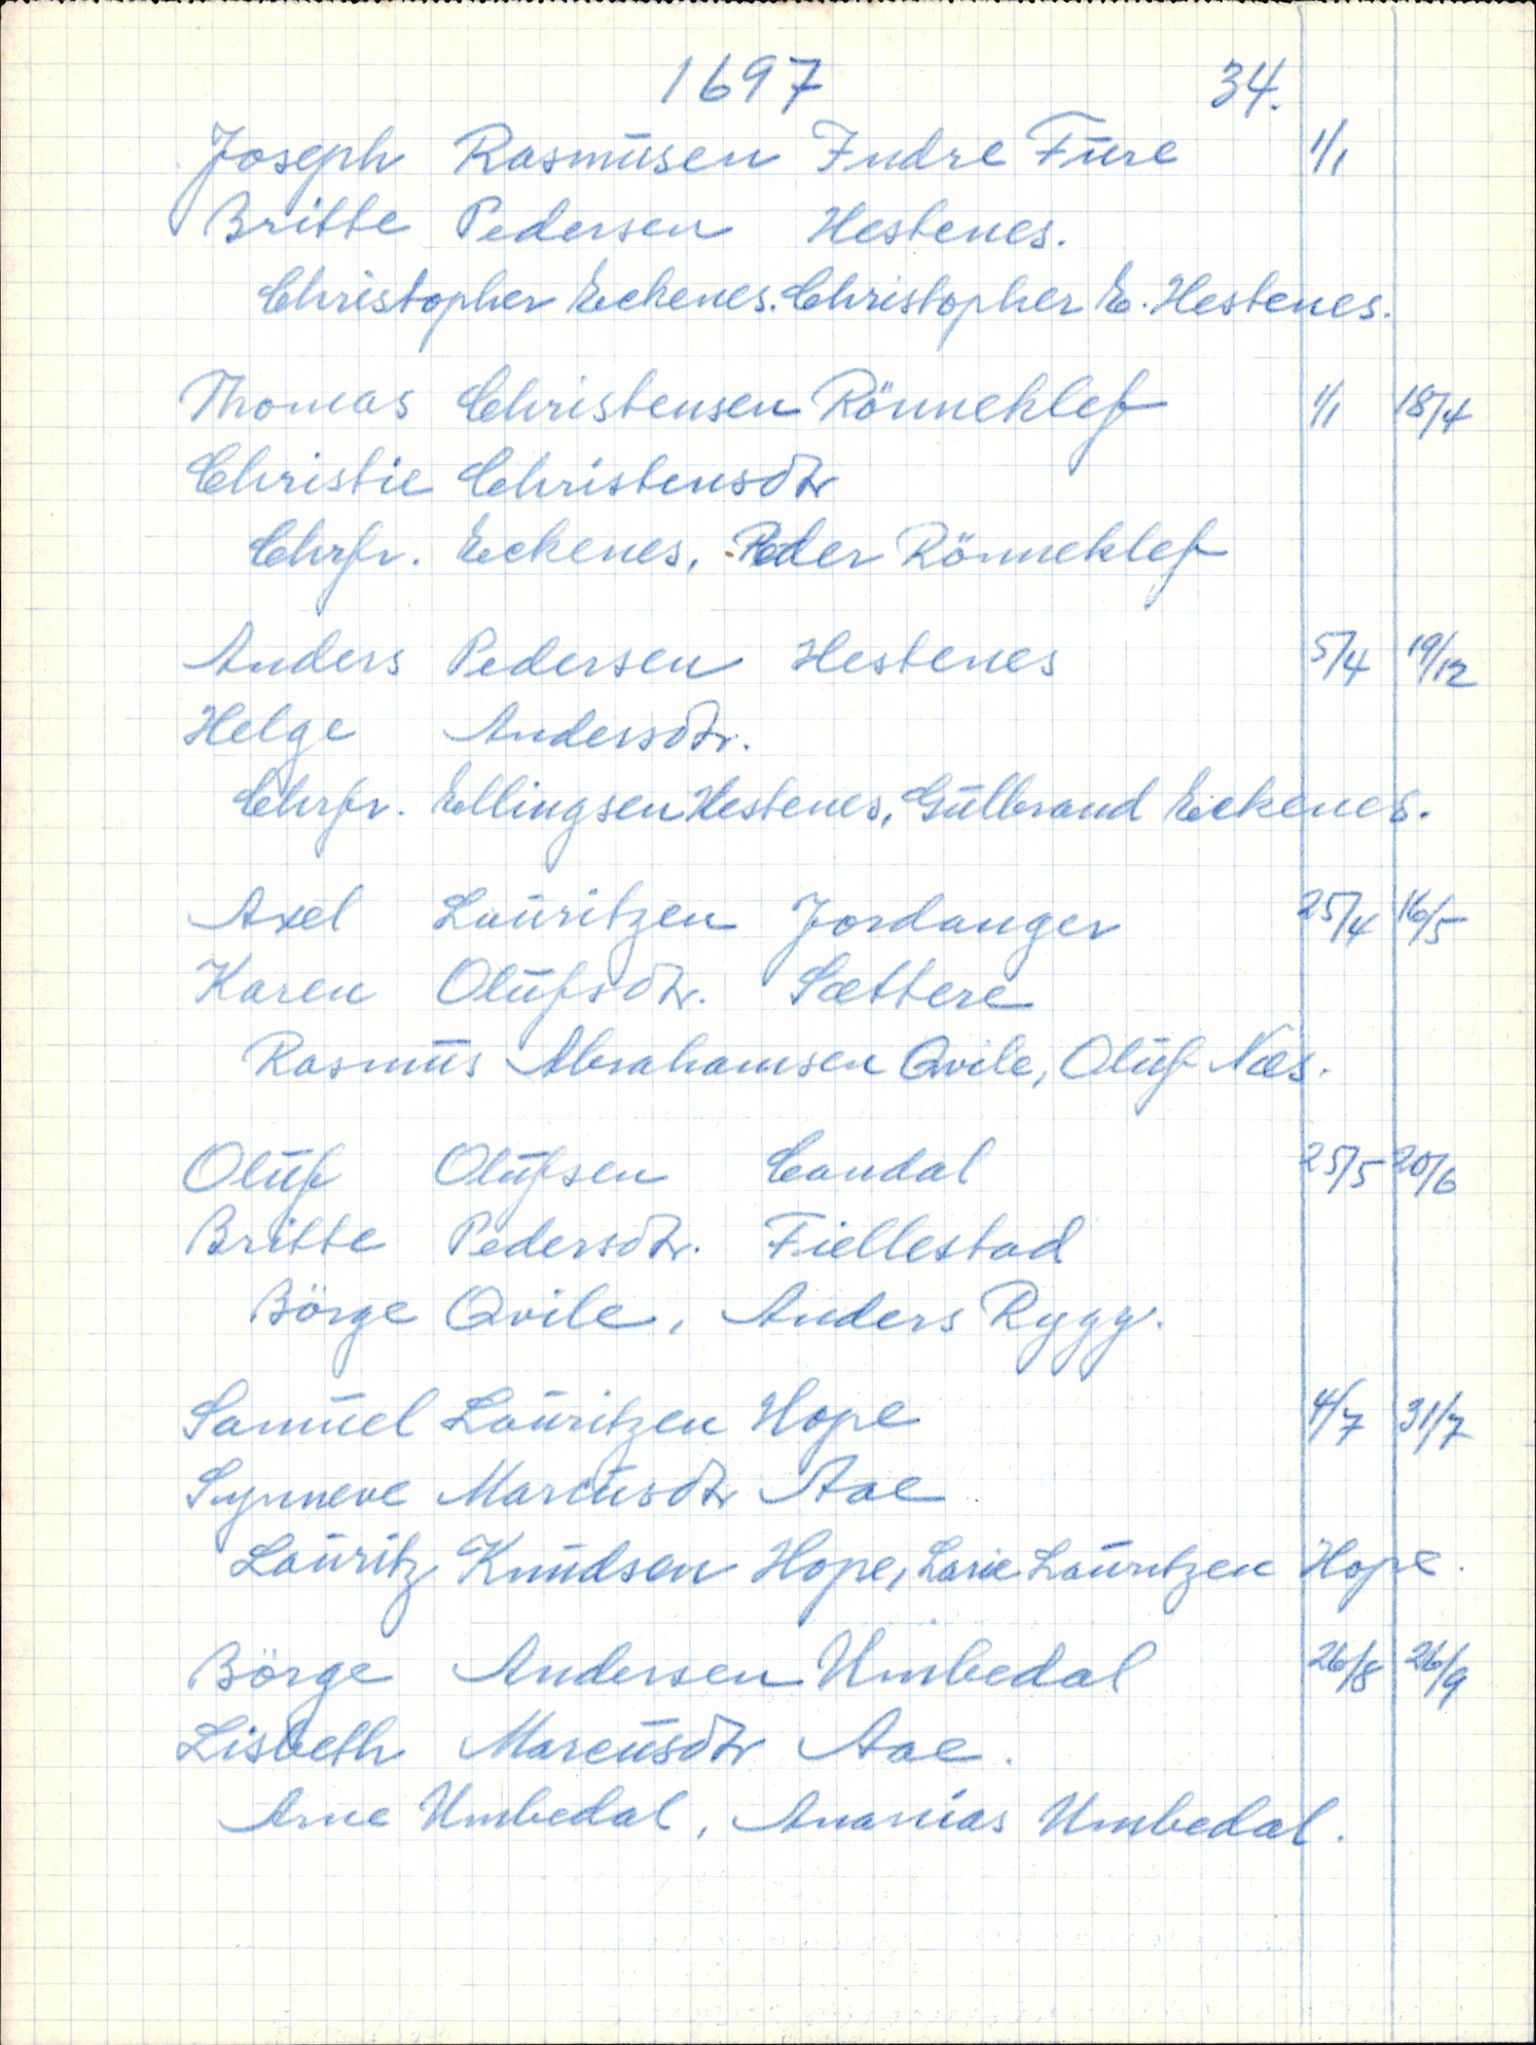 1697 34.
Joseph Rasmusen Indre Fure 1/1
Britte Pedersen Hestenes.
Christopher Eckenes. Christopher E. Hestenes.
Thomas Christensen Rönneklef 1/1 18/4
Christie Christensdtr
Chrfr. Eckenes, Peder Rönneklef
Anders Pedersen Hestenes 5/4 19/12
Helge Andersdtr.
Chrfr. Ellingsen Hestenes, Gulbrand Eckenes.
Axel Lauritzen Jordanger 25/4 16/5
Karen Olufsdtr. Sættere
Rasmus Abrahamsen Qvile, Oluf Næs.
Oluf Olufsen Candal 25/5 20/6
Britte Pedersdtr. Fiellestad
Börge Qvile, Anders Rygg.
Samuel Lauritzen Hope 4/7 31/7
Synneve Marcusdtr Aae
Lauritz Knudsen Hope, Lasse Lauritzen Hope.
Börge Andersen Umbedal 26/8 26/9
Lisbeth Marcusdtr Aae.
Arne Umbedal, Ananias Umbedal.